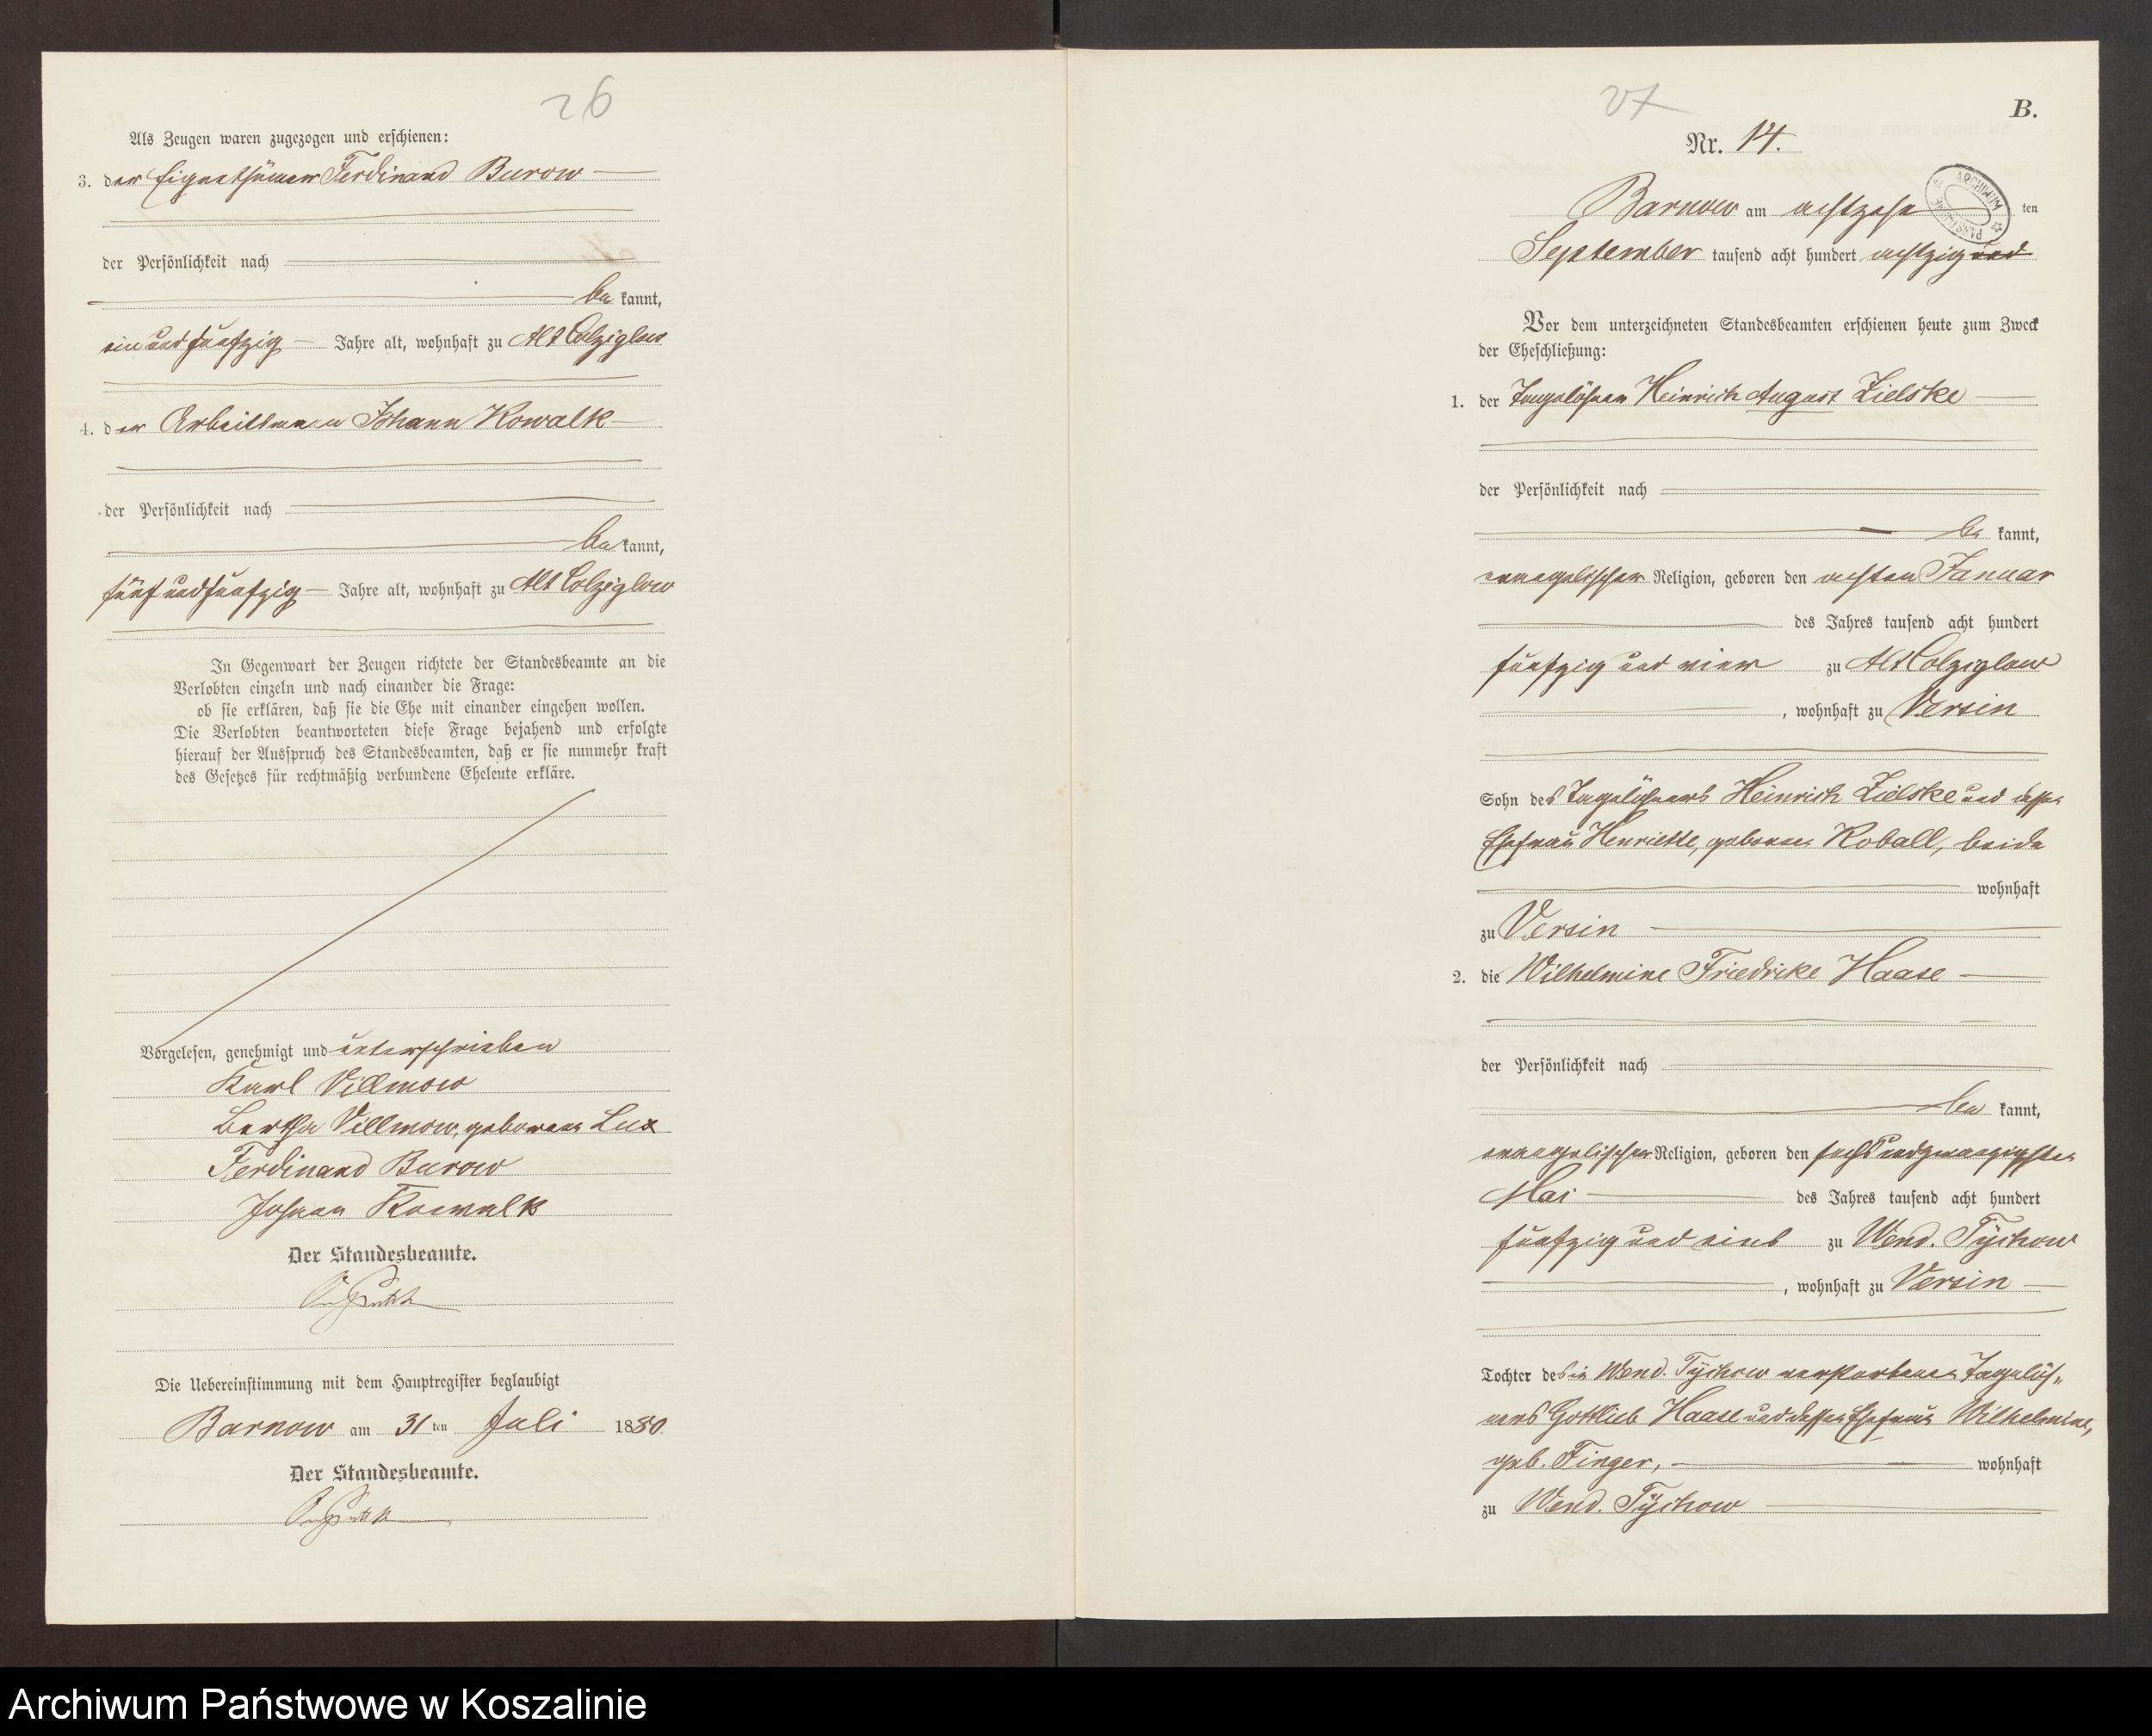 26
Als Zeugen waren zugezogen und erschienen:
3. der Eigenthümer Ferdinand Burow
der Persönlichkeit nach
be kannt,
ein und fünfzig Jahre alt, wohnhaft zu Alt Colziglow
4. der Arbeitsmann Johann Kowalk
der Persönlichkeit nach
be kannt,
fünf und fünfzig Jahre alt, wohnhaft zu Alt Colziglow
In Gegenwart der Zeugen richtete der Standesbeamte an die
Verlobten einzeln und nach einander die Frage:
ob sie erklären, daß sie die Ehe mit einander eingehen wollen.
Die Verlobten beantworteten diese Frage bejahend und erfolgte
hierauf der Ausspruch des Standesbeamten, daß er sie nunmehr kraft
des Gesetzes für rechtmäßig verbundene Eheleute erkläre.
Vorgelesen, genehmigt und unterschrieben
Karl Villmow
Bertha Villmow, geborene Lux
Ferdinand Burow
Johann Kowalk
Der Standesbeamte.
Die Uebereinstimmung mit dem Hauptregister beglaubigt
Barnow am 31 ten Juli 1880.
Der Standesbeamte.
27
B.
Nr. 14.
ARCHIWUM PAŃSTWOWE
Barnow am achtzehn ten
September tausend acht hundert achtzig und
Vor dem unterzeichneten Standesbeamten erschienen heute zum Zweck
der Eheschließung:
1. der Tagelöhner Heinrich August Zielske
der Persönlichkeit nach
be kannt,
evangelischer Religion, geboren den achten Januar
des Jahres tausend acht hundert
fünfzig und vier zu Alt Colziglow
, wohnhaft zu Versin
Sohn des Tagelöhners Heinrich Zielske und dessen
Ehefrau Henriette, geborene Koball, beide
wohnhaft
zu Versin
2. die Wilhelmine Friedrike Haase
der Persönlichkeit nach
be kannt,
evangelischer Religion, geboren den sechs und zwanzigsten
Mai des Jahres tausend acht hundert
fünfzig und eins zu Wend. Tychow
, wohnhaft zu Versin
Tochter des in Wend. Tychow verstorbenen Tagelöh-
ners Gottlieb Haase und dessen Ehefrau Wilhelmine,
geb. Finger, wohnhaft
zu Wend. Tychow
Archiwum Państwowe w Koszalinie